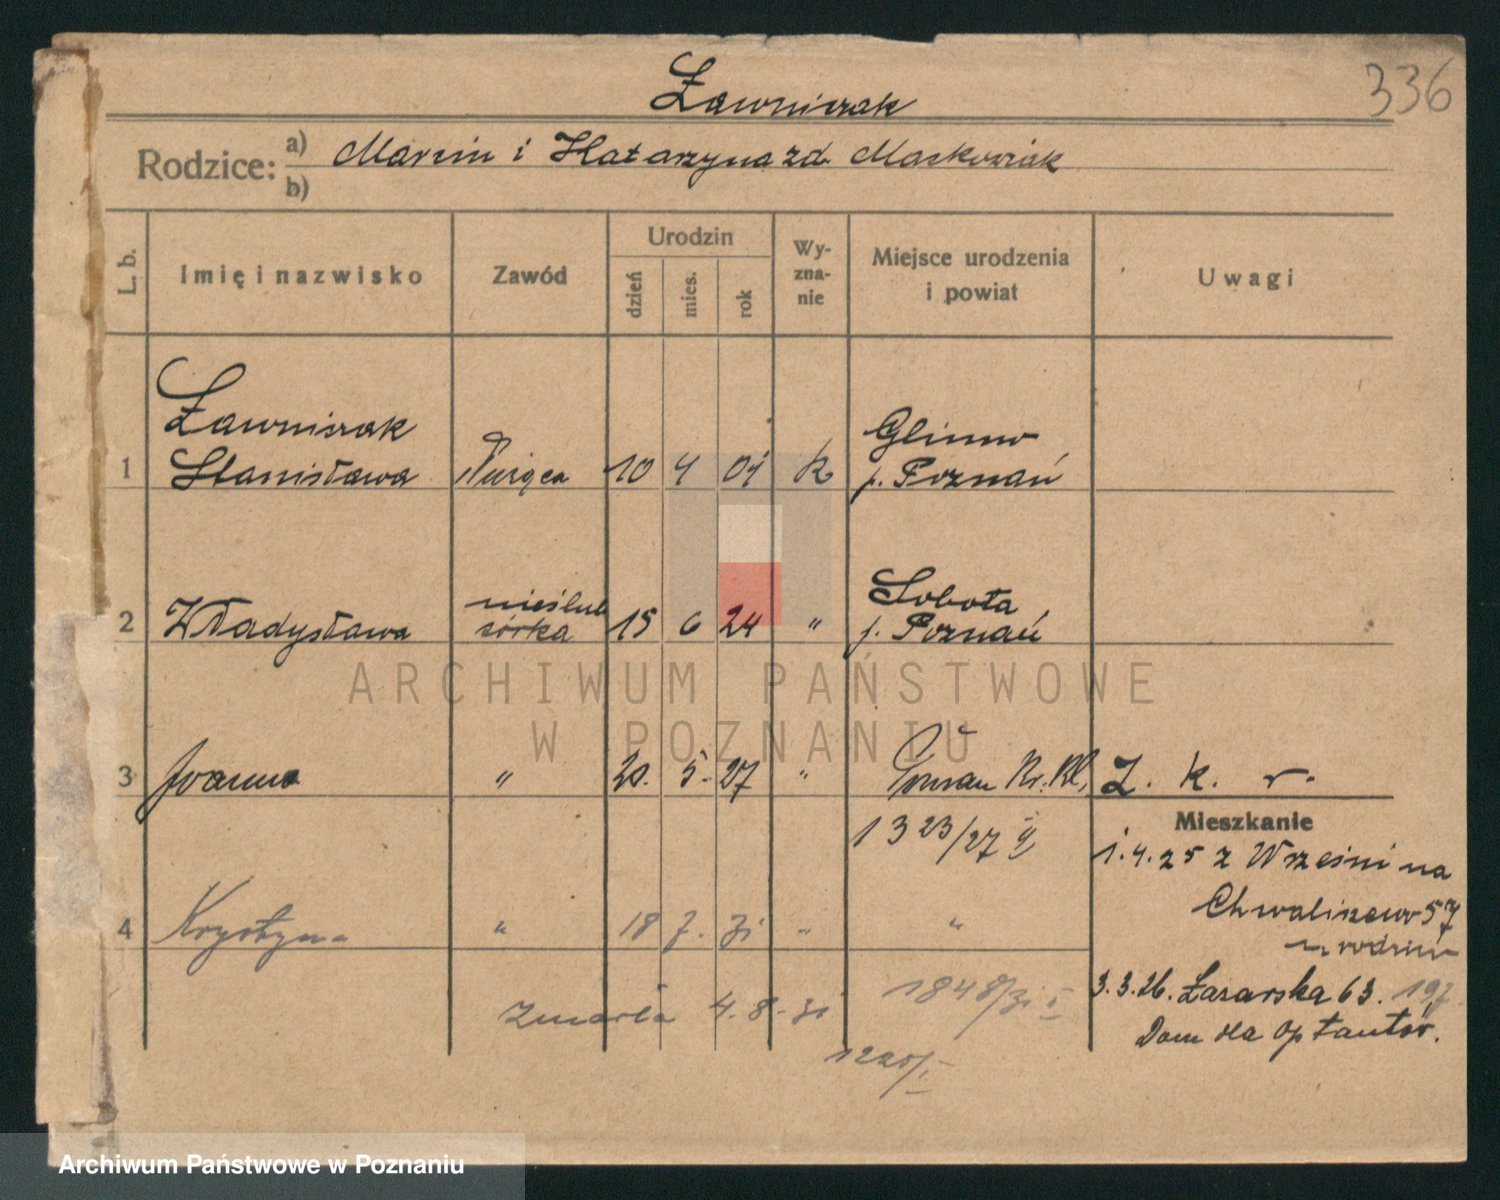 336
Ławniczak
Rodzice: a) Marcin i Katarzyna zd. Maćkowiak
b)
L. b.
Imię i nazwisko
Zawód
Urodzin
dzień
mies.
rok
Wy-
zna-
nie
Miejsce urodzenia
i powiat
Uwagi
Ławniczak
1 Stanisława 10 4 01 k
Glinno
p. Poznań
nieślub
2 Władysława córka 15 6 24 "
Sobota
p. Poznań
3 Joanna " 20. 5. 27 " Poznań Z. k. r.
1323/27 II
Mieszkanie
1.4.25 z Wrześni na
Chwaliszewo 57
4 Krystyna " 18 7. 31 " "
3.3.26. Łazarska 63.
Dom dla Optantów.
zmarła 4.8.31
1848/31 I
ARCHIWUM PAŃSTWOWE
W POZNANIU
Archiwum Państwowe w Poznaniu